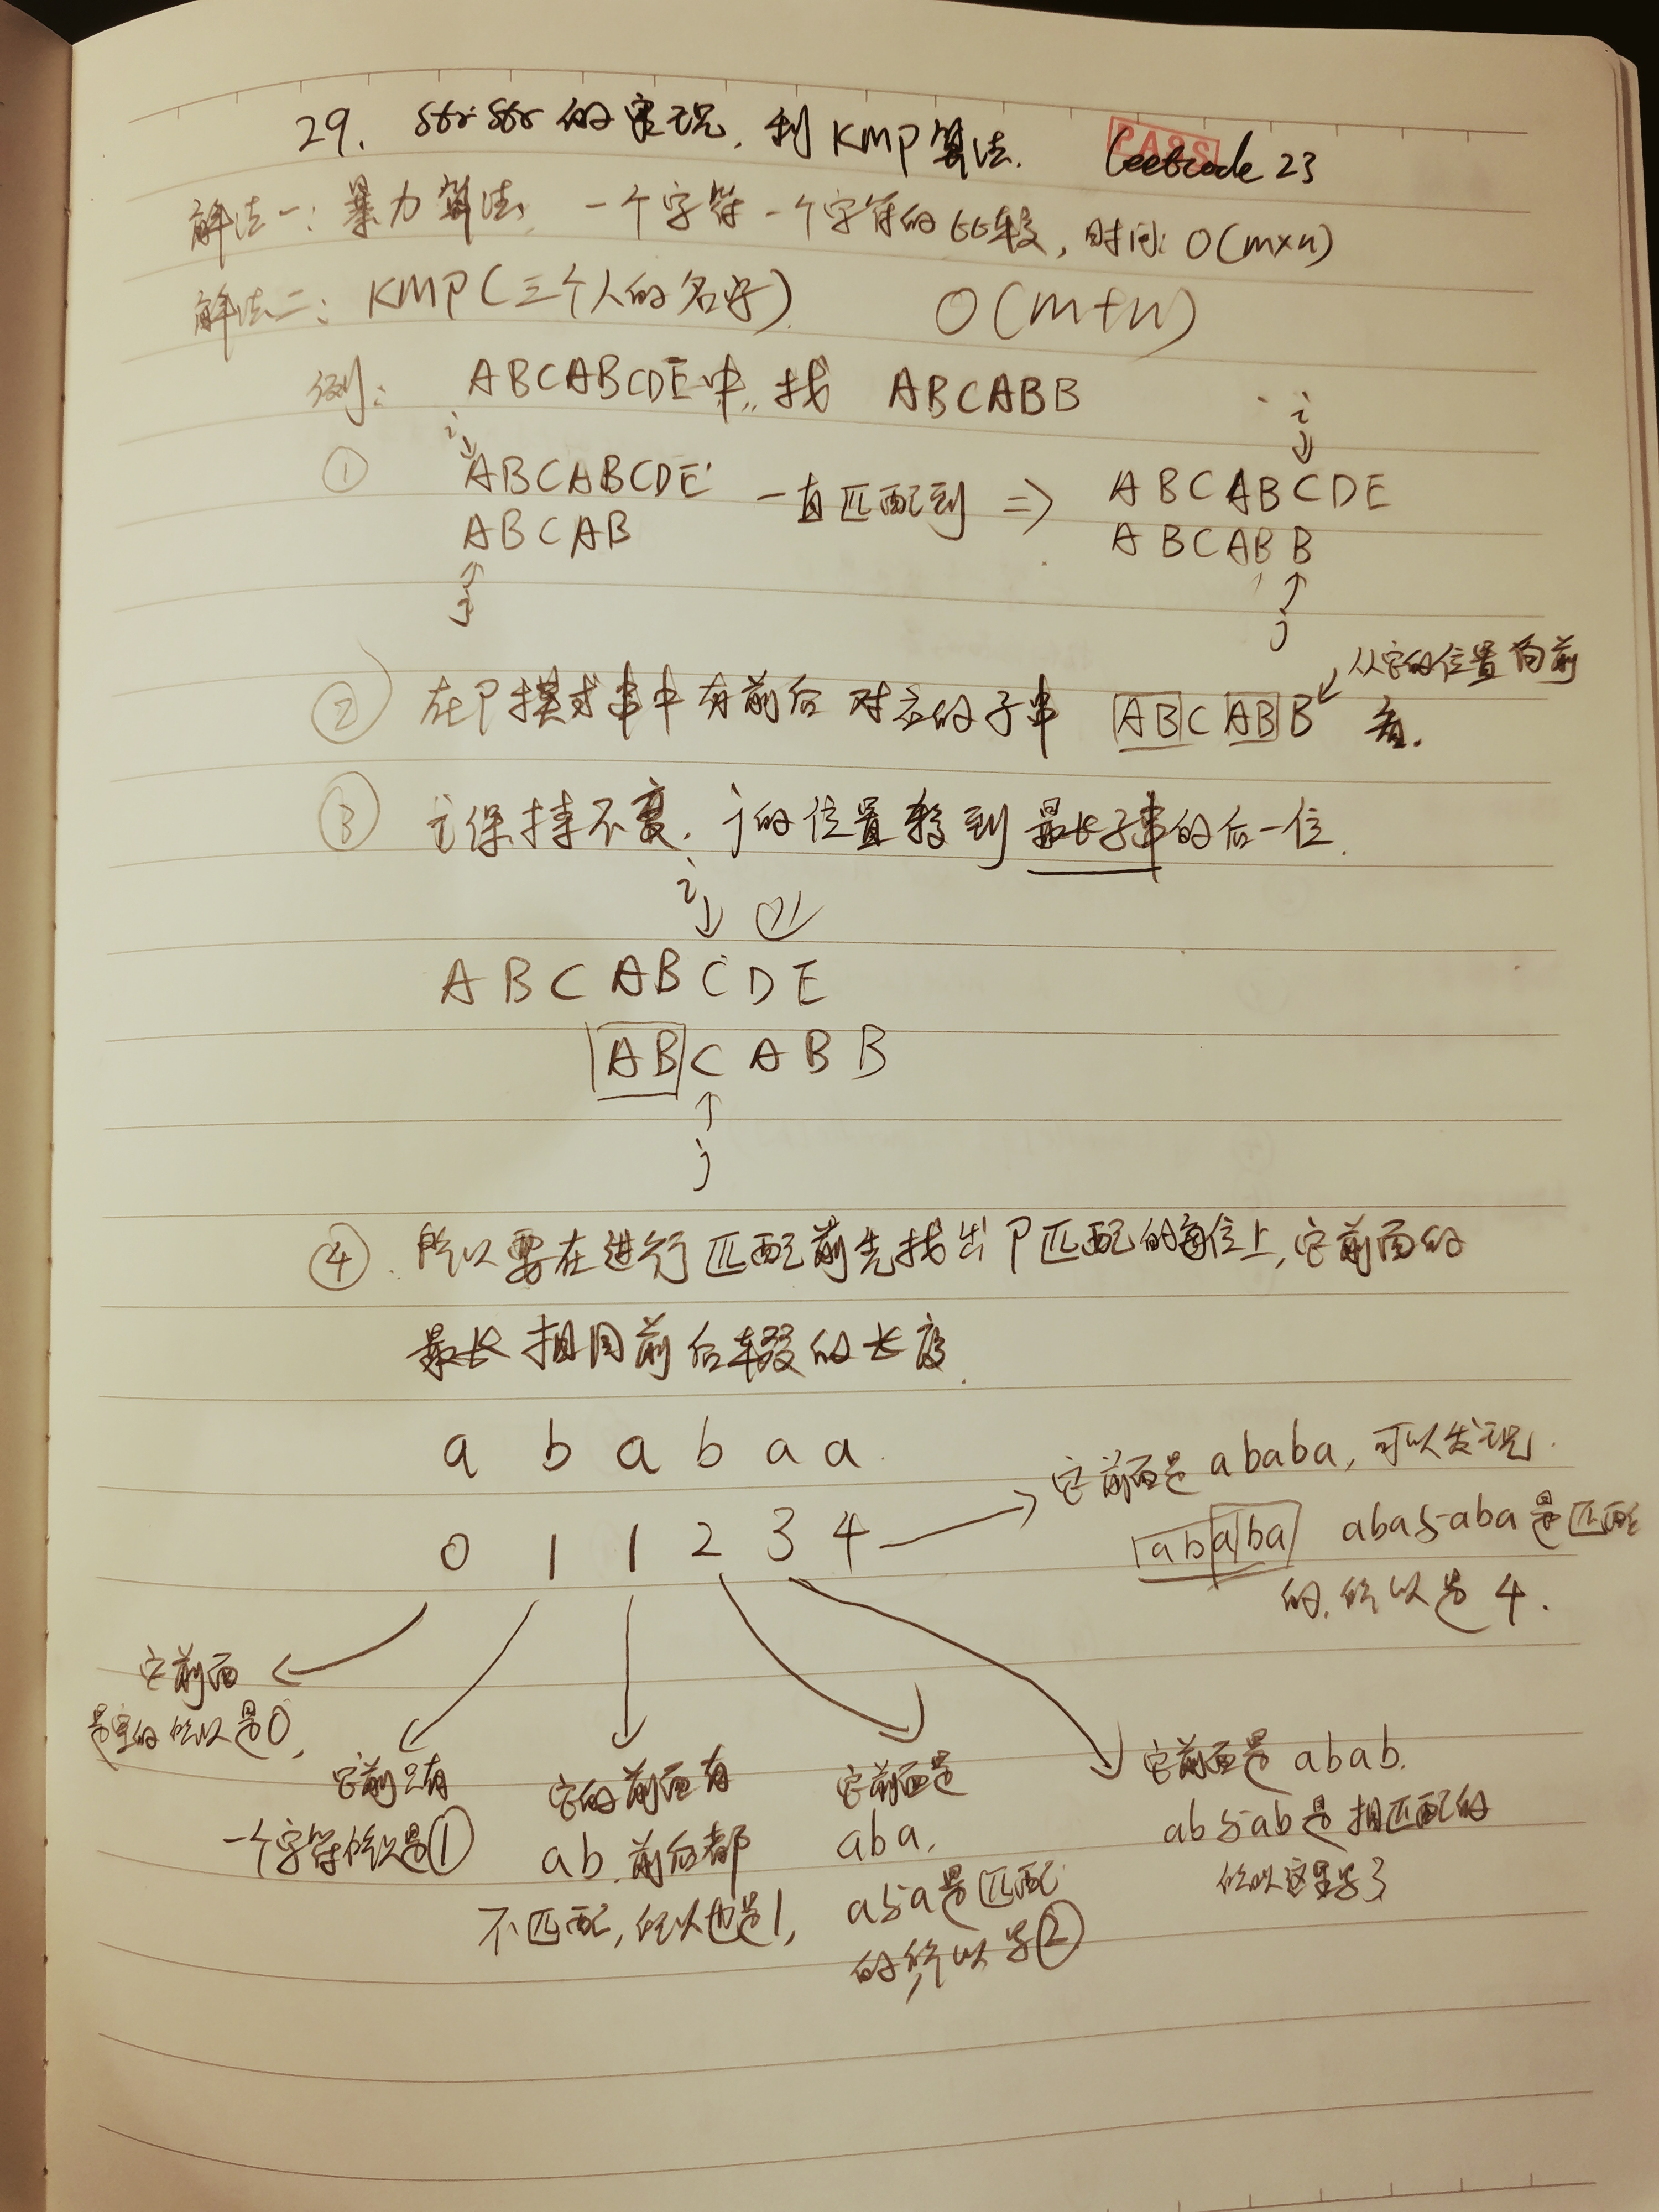 29. strstr的实现,利KMP算法. leetcode 23
PASS
解法一:暴力算法,一个字符一个字符的比较,时间:O(m×n)
解法二:KMP(三个人的名字). O(m+n)
例: ABCABCDE中,找 ABCABB
i i
① ABCABCDE 一直匹配到 ⇒ ABCABCDE
ABCAB ABCABB
j j
② 在P模式串中有前后对应的子串 ABCABB 从它的位置向前看.
③ i保持不变,j的位置移到最长子串的后一位.
i
ABCABCDE
ABCABB
j
④.所以要在进行匹配前先找出P匹配的每位上,它前面的
最长相同前后缀的长度.
a b a b a a
0 1 1 2 3 4
它前面是ababa,可以发现.
ababa aba与aba是匹配
的,所以是4.
它前面
是空的所以是0,
它前只有
一个字符所以是①
它的前面有
ab.前后都
不匹配,所以也是1,
它前面是
aba,
a与a是匹配
的所以是②
它前面是abab.
ab与ab是相匹配的
所以这里是3